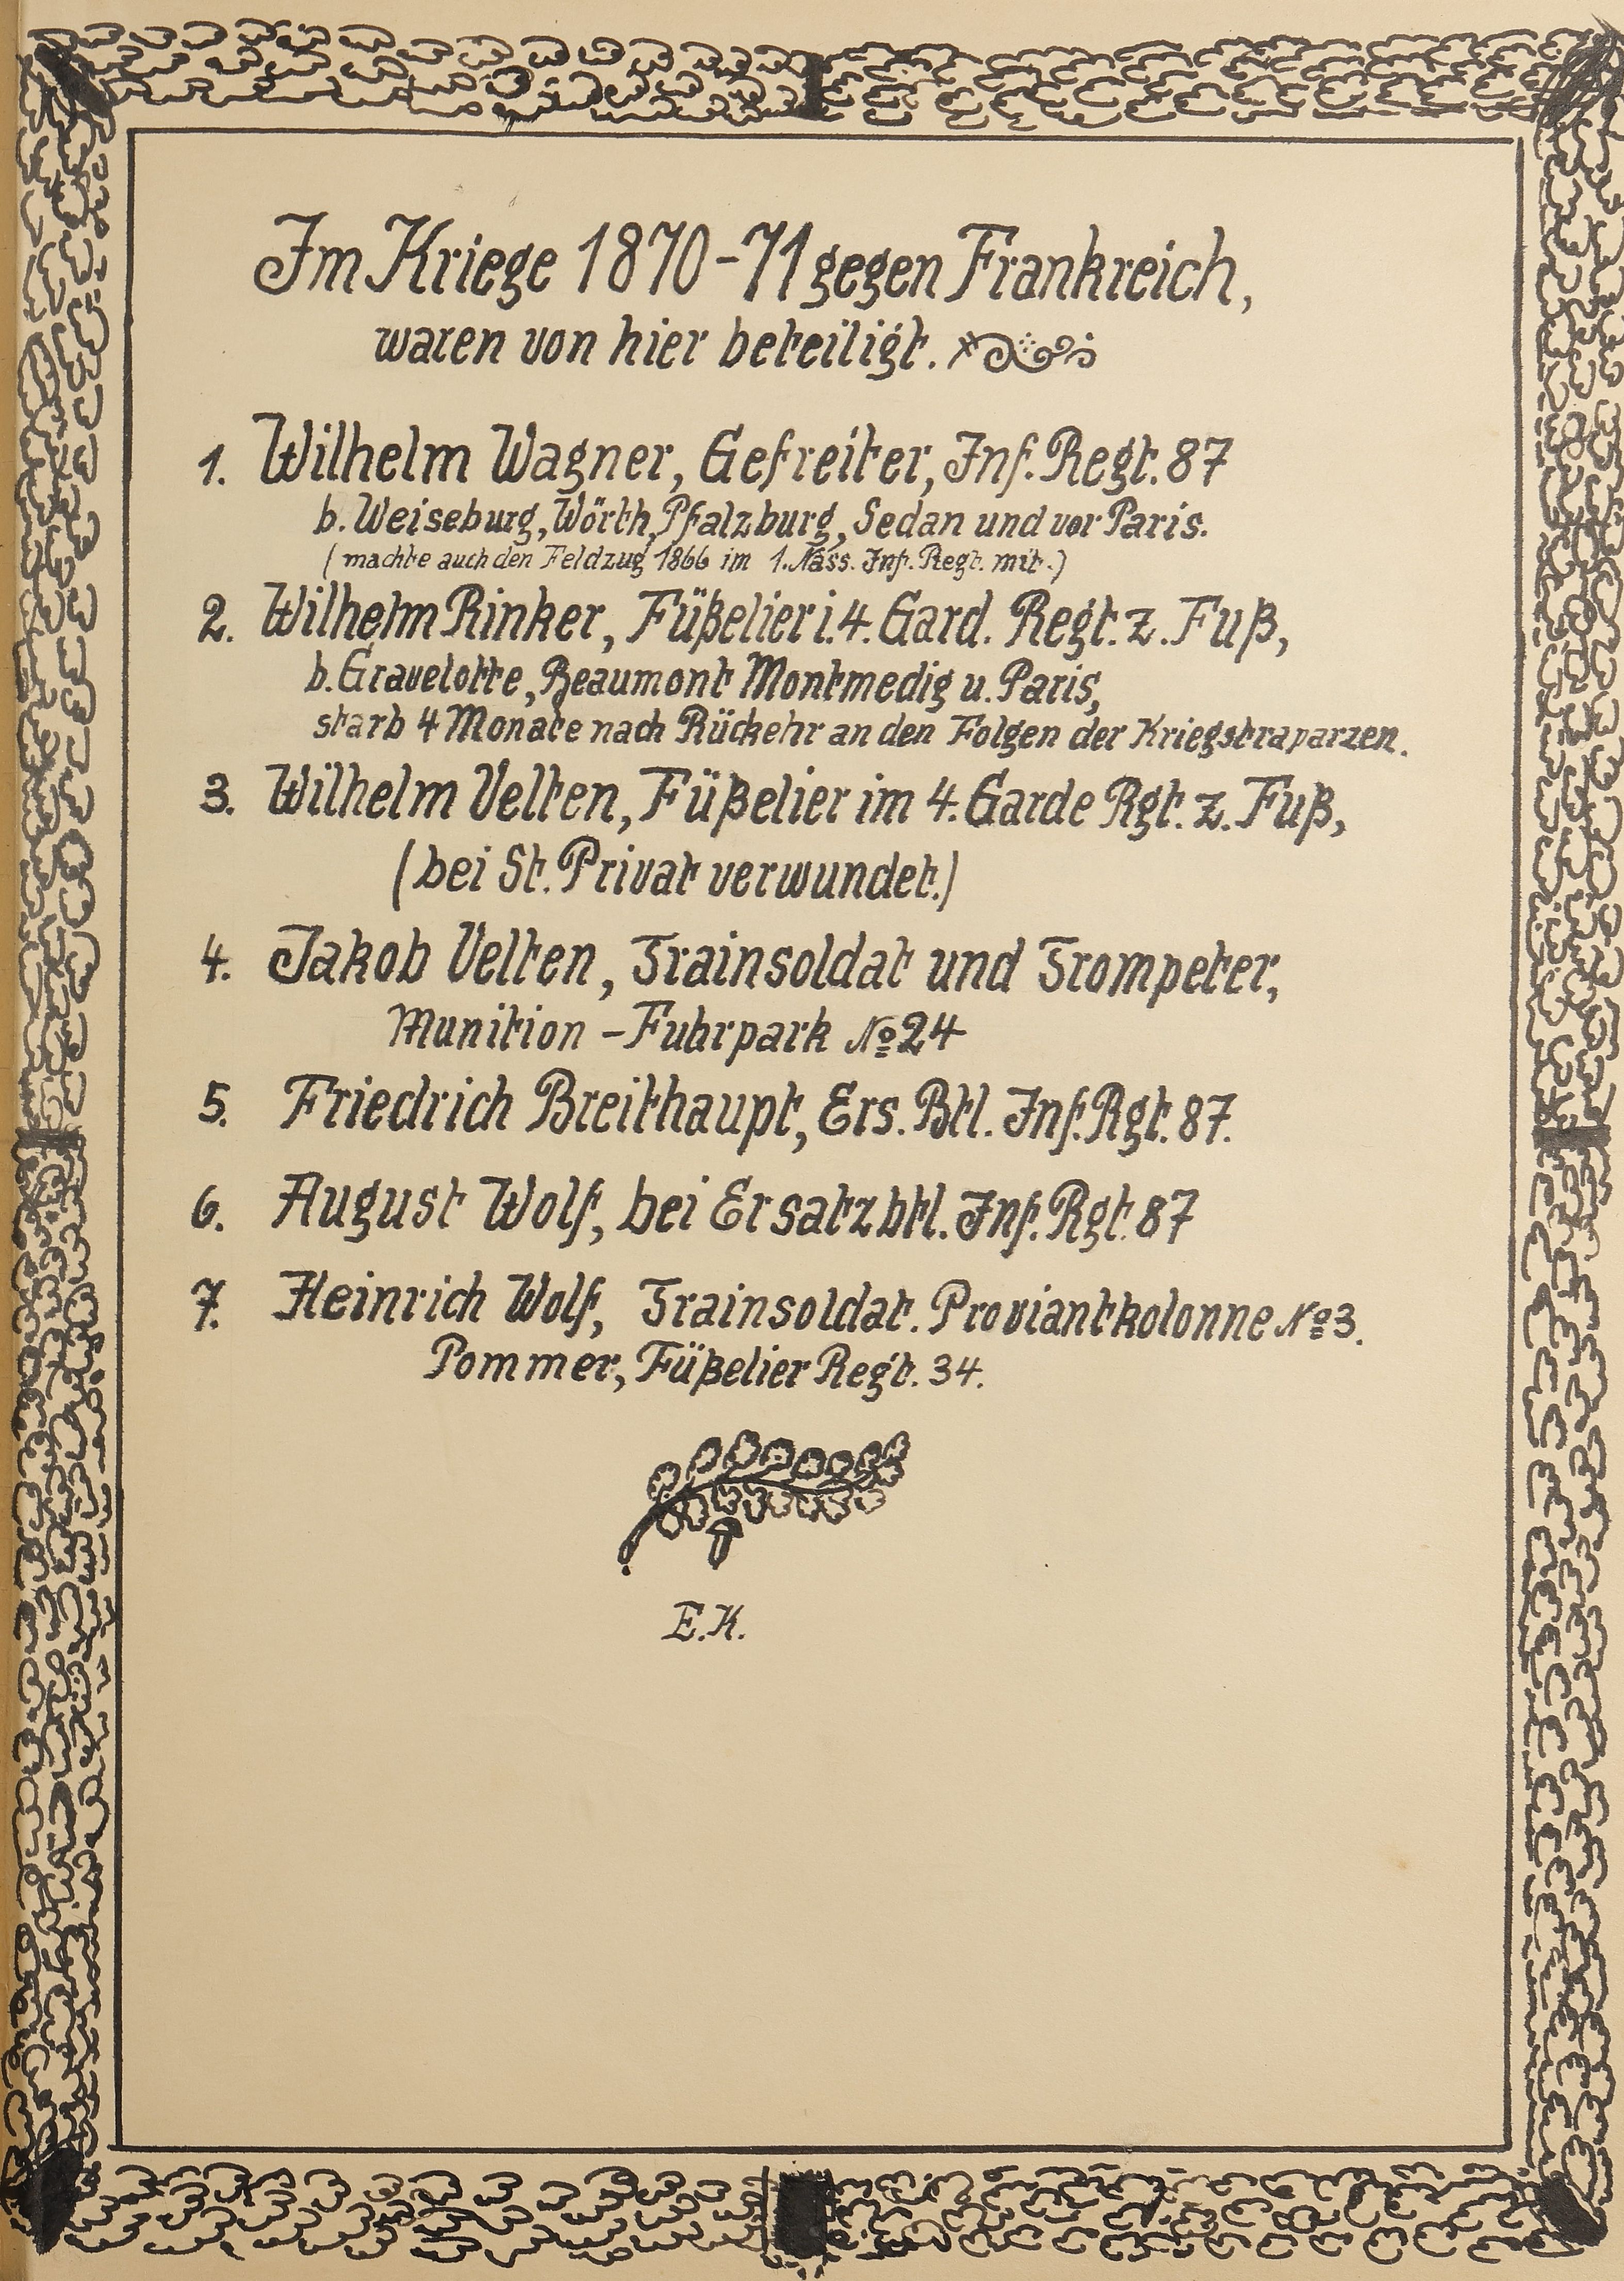 Im Kriege 1870-71 gegen Frankreich,
waren von hier beteiligt.
1. Wilhelm Wagner, Gefreiter, Inf. Regt. 87
b. Weiseburg, Wörth, Pfalzburg, Sedan und vor Paris.
(machte auch den Feldzug 1866 im 1. Nass. Inf. Regt. mit.)
2. Wilhelm Rinker, Füßelier i. 4. Gard. Regt. z. Fuß,
b. Gravelotte, Beaumont Montmedig u. Paris,
starb 4 Monate nach Rückehr an den Folgen der Kriegstraparzen.
3. Wilhelm Velten, Füßelier im 4. Garde Rgt. z. Fuß,
(bei St. Privat verwundet.)
4. Jakob Velten, Trainsoldat und Trompeter,
Munition - Fuhrpark No 24
5. Friedrich Breithaupt, Ers. Btl. Inf. Rgt. 87.
6. August Wolf, bei Ersatzbtl. Inf. Rgt. 87
7. Heinrich Wolf, Trainsoldat. Proviantkolonne No 3.
Pommer, Füßelier Regt. 34.
E.K.